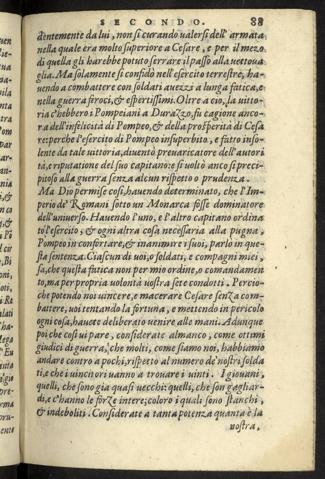 SECONDO. 88
dentemente da lui, non si curando ualersi dell'armata
nella quale era molto superiore a Cesare, e per il mezo
di quella gli harebbe potuto serrare il passo alla uettoua
glia. Ma solamente si confidò nell'esercito terrestre, ha-
uendo a combattere con soldati auezzi a lunga fatica, e
nella guerra feroci, & espertissimi. Oltre a ciò, la uitto-
ria c'hebbero i Pompeiani a Durazzo, fu cagione anco-
ra dell'infelicità di Pompeo, & della prosperità di Cesa
re: perche l'esercito di Pompeo insuperbito, e fatto inso-
lente da tale uittoria, diuentò preuaricatore dell'autori
tà, e riputatione del suo capitano: e si uoltò anco si preci-
pitoso alla guerra senza alcun rispetto o prudenza.
Ma Dio permise così, hauendo determinato, che l'Im-
perio de' Romani sotto un Monarca fosse dominatore
dell'uniuerso. Hauendo l'uno, e l'altro capitano ordina
to l'esercito, & ogni altra cosa necessaria alla pugna,
Pompeo in confortare, & inanimire i suoi, parlò in que-
sta sentenza. Ciascun di uoi, o soldati, e compagni miei,
sa, che questa fatica non per mio ordine, o comandamen
to, ma per propria uolontà uostra sete condotti. Percio-
che potendo noi uincere, e macerare Cesare senza com-
battere, uoi tentando la fortuna, e mettendo in pericolo
ogni cosa, hauete deliberato uenire alle mani. Adunque
poi che così ui pare, considerate almanco, come ottimi
giudici di guerra, che molti, come siamo noi, habbiamo
andare contro a pochi, rispetto al numero de' nostri solda
ti, e che i uincitori uanno a trouare i uinti. I giouani,
quelli, che sono gia quasi uecchi: quelli, che son gagliar-
di, e c'hanno le forze intere; coloro i quali sono stanchi,
& indeboliti. Considerate a tanta potenza quanta è la
uostra,